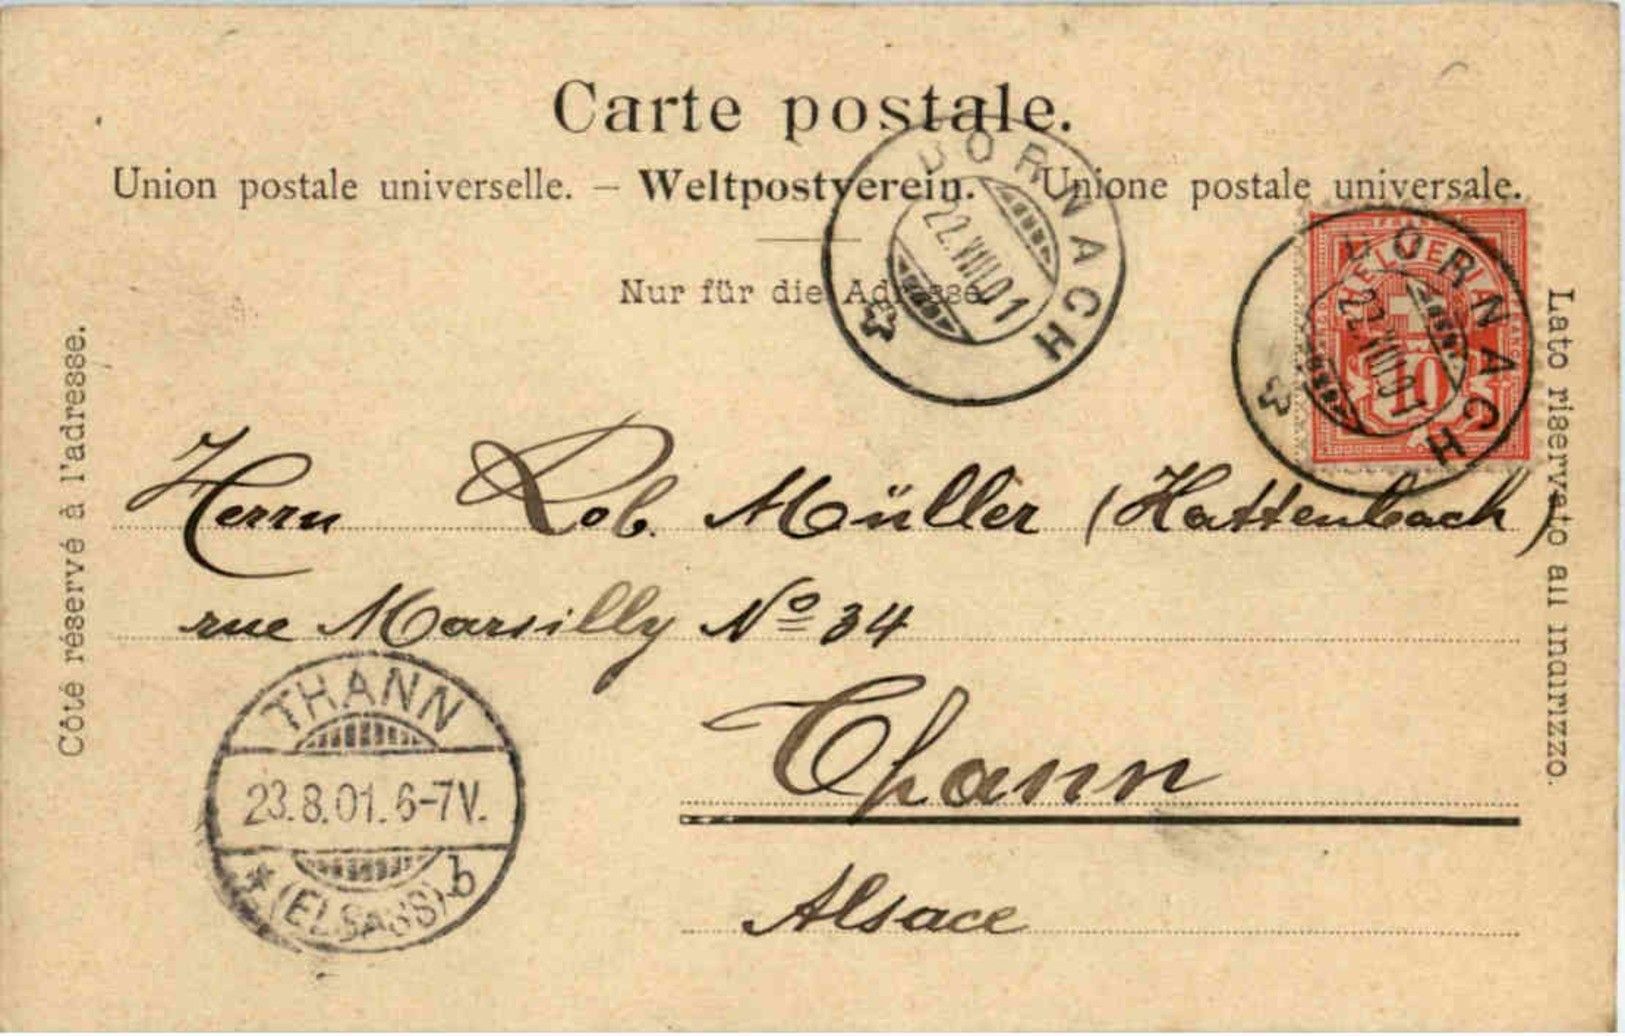 Carte postale.
Union postale universelle. — Weltpostverein. — Unione postale universale.
Nur für die Adresse.
DORNACH
22.VIII.01
DORNACH
22.VIII.01
FRANCO
HELVETIA
10
Côté réservé à l'adresse.
Lato riservato all indirizzo.
Herrn Rob. Müller (Hattenbach)
rue Marsilly No 34
Thann
Alsace
THANN
23.8.01.6-7V.
* (ELSASS) b